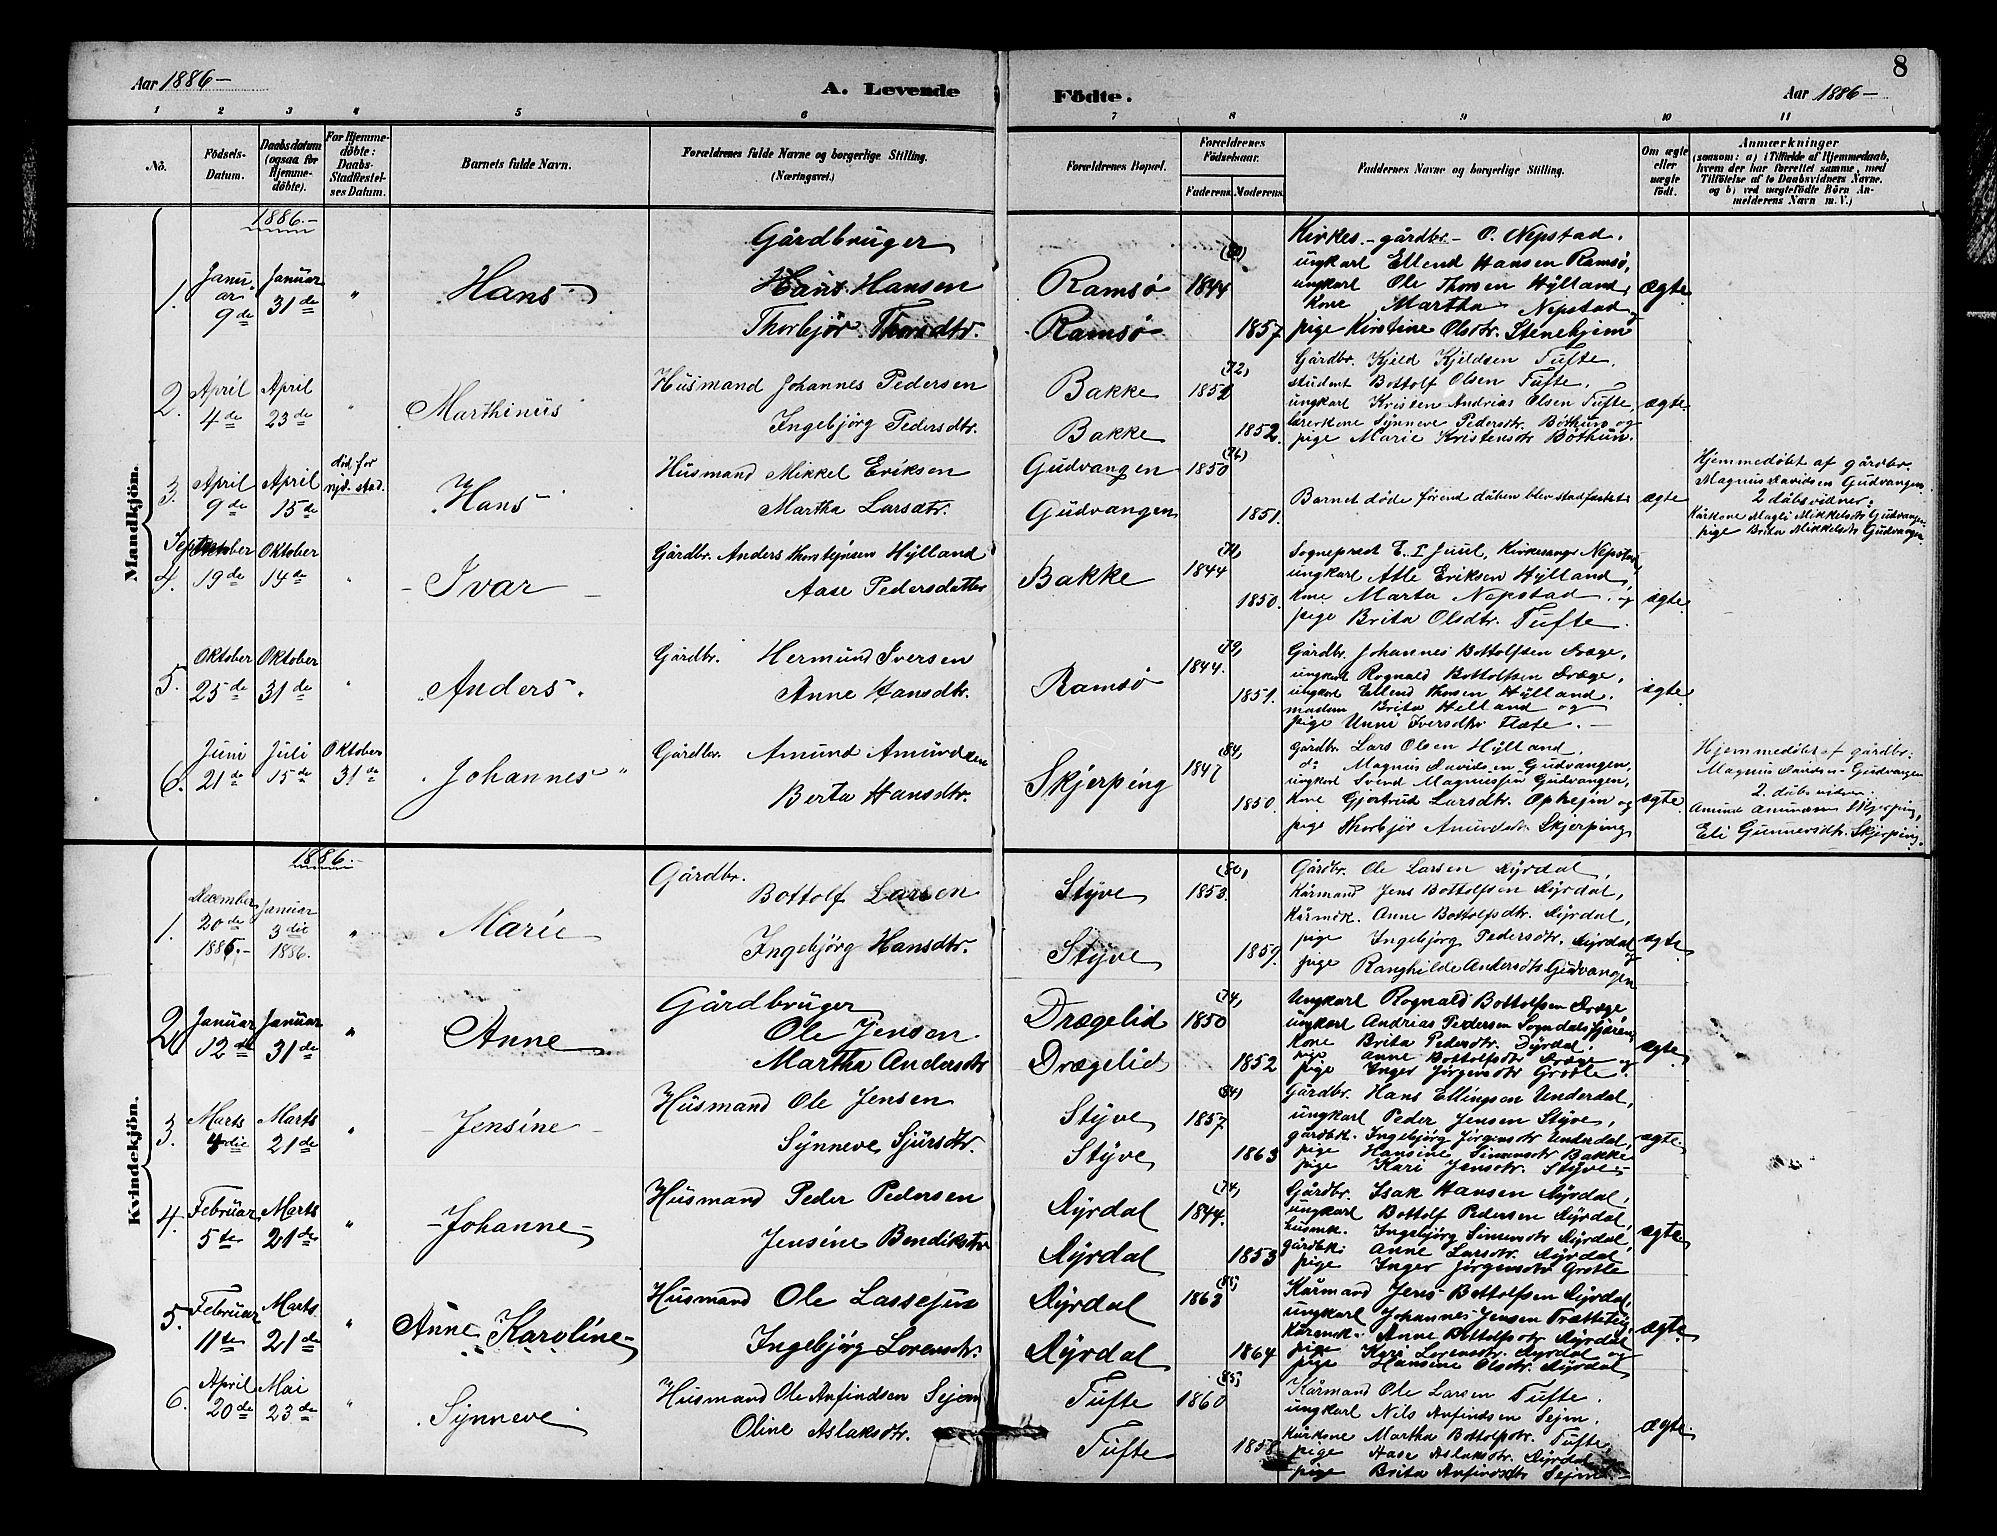 8
Aar 1886 —
A. Levende Födte.
Aar 1886 —
1 2 3 4 5 6 7 8 9 10 11
No.
Födsels-Datum.
Daabsdatum (ogsaa for Hjemmedöbte).
For Hjemmedöbte: Daabs-Stadfæstelses Datum.
Barnets fulde Navn.
Forældrenes fulde Navne og borgerlige Stilling. (Næringsvei.)
Forældrenes Bopæl.
Forældrenes Födselsaar.
Faderens. Moderens.
Faddernes Navne og borgerlige Stilling.
Om ægte eller uægte födt.
Anmærkninger
(saasom: a) i Tilfælde af Hjemmedaab, hvem der har forrettet samme, med Tilföielse af to Daabsvidners Navne, og b) ved uægtefödte Börn Anmelderens Navn m. V.)
Mandkjön.
1886.—
1. Januar 9de
Januar 31de
"
Hans
Gårdbruger
Hans Hansen
Thorbjör Thorsdtr.
Ramsö
Ramsö
1844
1857
Kirkes.-gårdbr- O. Nepstad,
ungkarl Ellend Hansen Ramsö,
ungkarl Ole Thorsen Hylland,
Kone Martha Nepstad og
pige Kirstine Olsdtr. Stenehjem
ægte
2. April 4de
April 23de
"
Marthinus
Husmand Johannes Pedersen
Ingebjörg Pedersdtr.
Bakke
Bakke
(72)
1852.
Gårdbr. Kjeld Kjeldsen Tufte,
student Bottolf Olsen Tufte,
ungkarl Kristen Andrias Olsen Tufte,
lærerkone Synneve Pedersdtr. Böthun og
pige Marie Kristensdtr Böthun.
ægte
3. April 9de
April 15de
död for stad.
Hans
Husmand Mikkel Eriksen
Martha Larsdtr.
Gudvangen
Gudvangen
(76)
1850
1851.
Barnet döde förend dåben blev stadfæstet
ægte
Hjemmedöbt af gårdbr.
Magnus Davidsen Gudvangen
2 dåbsvidner:
Kårkone Magli Mikkelsdtr Gudvangen
pige Brita Mikkelsdtr Gudvangen
4. September 19de
Oktober 14de
"
Ivar
Gårdbr. Anders Thorstejnsen Hylland
Aase Pedersdatter
Bakke
(71)
1844
1850.
Sogneprest E. I Juul, Kirkesanger Nepstad,
ungkarl Atle Eriksen Hylland,
Kone Marta Nepstad, og
pige Brita Olsdtr. Tufte.
ægte
5. Oktober 25de
Oktober 31de
"
Anders
Gårdbr. Hermund Iversen
Anne Hansdtr.
Ramsö
(79)
1844.
1851.
Gårdbr. Johannes Bottolfsen Dræge,
ungkarl Rognald Bottolfsen Dræge,
ungkarl Ellend Thorsen Hylland,
madam Brita Helland og
pige Unni Iversdtr Flæte.—
ægte
6. Juni 21de
Juli 15de
Oktober 31de
Johannes
Gårdbr. Amund Amundsen
Berta Hansdtr.
Skjerping
(84)
1847
1850.
gårdbr. Lars Olsen Hylland,
do Magnus Davidsen Gudvangen,
ungkarl Svend Magnussen Gudvangen,
Kone Gjertrud Larsdtr. Ophejm og
pige Thorbjör Amundsdtr Skjerping
ægte
Hjemmedöbt af gårdbr.
Magnus Davidsen Gudvangen
2 dåbsvidner
Amund Amundsen Skjerping,
Eli Gunnersdtr. Skjerping.
Kvindekjön.
1886.—
1. December 20de 1885.—
Januar 3die 1886.
"
Marie
Gårdbr.
Bottolf Larsen
Ingebjörg Hansdtr.
Styve
Styve
(80)
1853.
1859.
Gårdbr. Ole Larsen Dyrdal,
Kårmand Jens Bottolfsen Dyrdal,
Kårmdk. Anne Bottolfsdtr. Dyrdal,
pige Ingebjörg Pedersdtr. Dyrdal og
pige Ranghilde Andersdtr Gudvangen
ægte
2. Januar 12te
Januar 31de
"
Anne
Gårdbruger
Ole Jensen
Martha Andersdtr
Drægelid
Drægelid
(74)
1850
1852
Ungkarl Rognald Bottolfsen Dræge,
ungkarl Andrias Pedersen Sogndalsfjæren,
Kone Brita Pedersdtr. Dyrdal,
pige Anne Bottolfsdtr Dræge og
pige Inger Jörgensdtr Grotle.
ægte
3. Marts 4die
Marts 21de
"
Jensine
Husmand Ole Jensen
Synneve Sjursdtr.
Styve
Styve
(84)
1857
1863
Gårdbr. Hans Ellingsen Underdal,
ungkarl Peder Jensen Styve,
gårdbk. Ingebjörg Jörgensdtr Underdal,
pige Hansine Simensdtr Bakke
pige Kari Jensdtr. Styve
ægte
4. Februar 5te
Marts 21de
"
Johanne
Husmand Peder Pedersen
Jensine Bendiksdtr
Dyrdal
Dyrdal
(74)
1844.
1853
Gårdbr. Isak Hansen Dyrdal,
ungkarl Bottolf Pedersen Dyrdal,
husmk. Ingebjörg Simensdtr Dyrdal,
gårdbk. Anne Larsdtr. Dyrdal
pige Inger Jörgensdtr Grotle
ægte
5. Februar 11te
Marts 21de
"
Anne Karoline
Husmand Ole Lassesen
Ingebjörg Lorensdtr.
Dyrdal
Dyrdal
(85)
1863
1864
Kårmand Jens Bottolfsen Dyrdal,
ungkarl Johannes Jensen Trættetej,
Kåremk. Anne Bottolfsdtr Dyrdal
pige Kari Lorensdtr. Dyrdal og
pige Hansine Olsdtr. Dyrdal
ægte
6. April 20de
Mai 23de
"
Synneve
Husmand Ole Anfindsen Sejm
Oline Aslaksdtr.
Tufte
Tufte
(85)
1860
1858
Kårmand Ole Larsen Tufte.
ungkarl Nils Anfindsen Sejm.
Kårkone Martha Bottolfsdtr. Tufte,
pige Aase Aslaksdtr. Dyrdal
pige Brita Anfindsdtr Sejm.
ægte